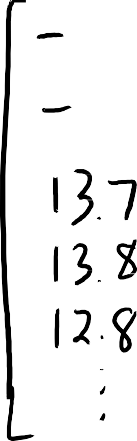 –
–
13.7
13.8
12.8
⋮